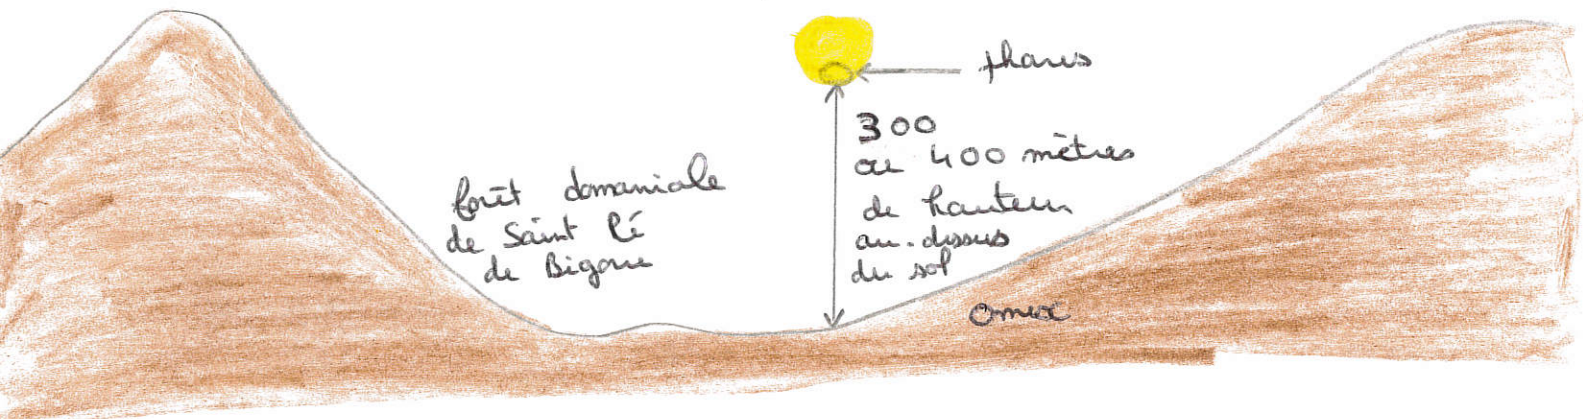 phares
300
ou 400 mètres
de hauteur
au-dessus
du sol
forêt domaniale
de Saint Pé
de Bigorre
Omex